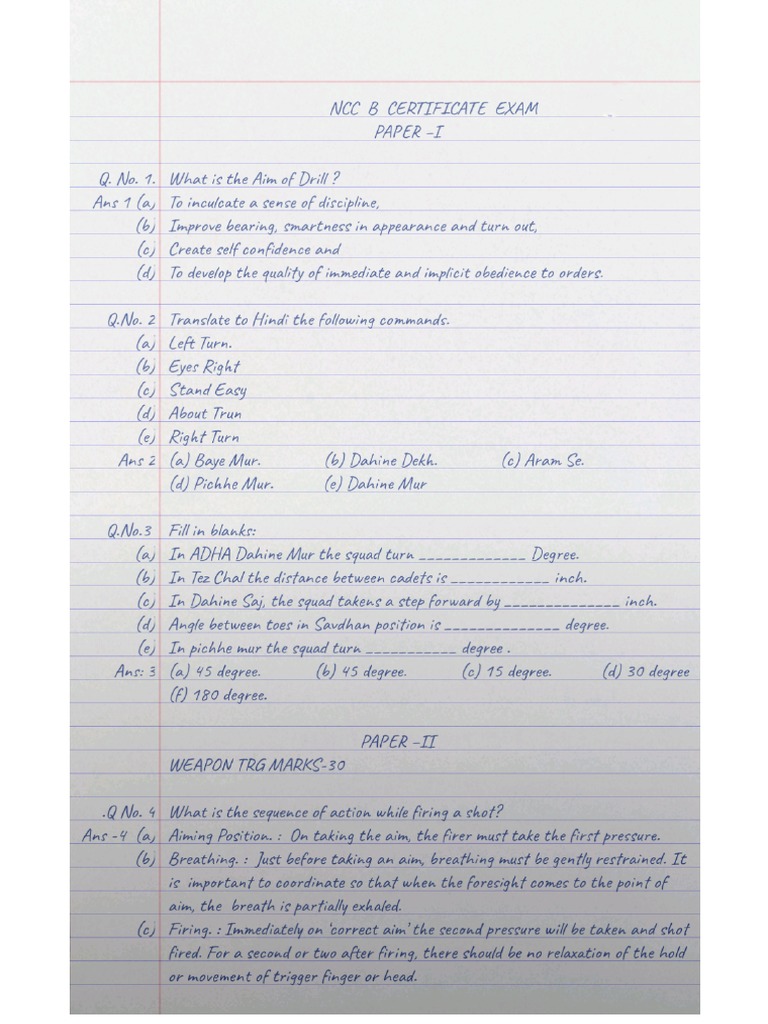 NCC B CERTIFICATE EXAM
PAPER –I
Q. No. 1. What is the Aim of Drill ?
Ans 1 (a) To inculcate a sense of discipline,
(b) Improve bearing, smartness in appearance and turn out,
(c) Create self confidence and
(d) To develop the quality of immediate and implicit obedience to orders.
Q.No. 2 Translate to Hindi the following commands.
(a) Left Turn.
(b) Eyes Right
(c) Stand Easy
(d) About Trun
(e) Right Turn
Ans 2 (a) Baye Mur. (b) Dahine Dekh. (c) Aram Se.
(d) Pichhe Mur. (e) Dahine Mur
Q.No.3 Fill in blanks:
(a) In ADHA Dahine Mur the squad turn _____________ Degree.
(b) In Tez Chal the distance between cadets is ____________ inch.
(c) In Dahine Saj, the squad takens a step forward by ______________ inch.
(d) Angle between toes in Savdhan position is ______________ degree.
(e) In pichhe mur the squad turn ___________ degree .
Ans: 3 (a) 45 degree. (b) 45 degree. (c) 15 degree. (d) 30 degree
(f) 180 degree.
PAPER –II
WEAPON TRG MARKS-30
.Q No. 4 What is the sequence of action while firing a shot?
Ans -4 (a) Aiming Position. : On taking the aim, the firer must take the first pressure.
(b) Breathing. : Just before taking an aim, breathing must be gently restrained. It
is important to coordinate so that when the foresight comes to the point of
aim, the breath is partially exhaled.
(c) Firing. : Immediately on 'correct aim' the second pressure will be taken and shot
fired. For a second or two after firing, there should be no relaxation of the hold
or movement of trigger finger or head.